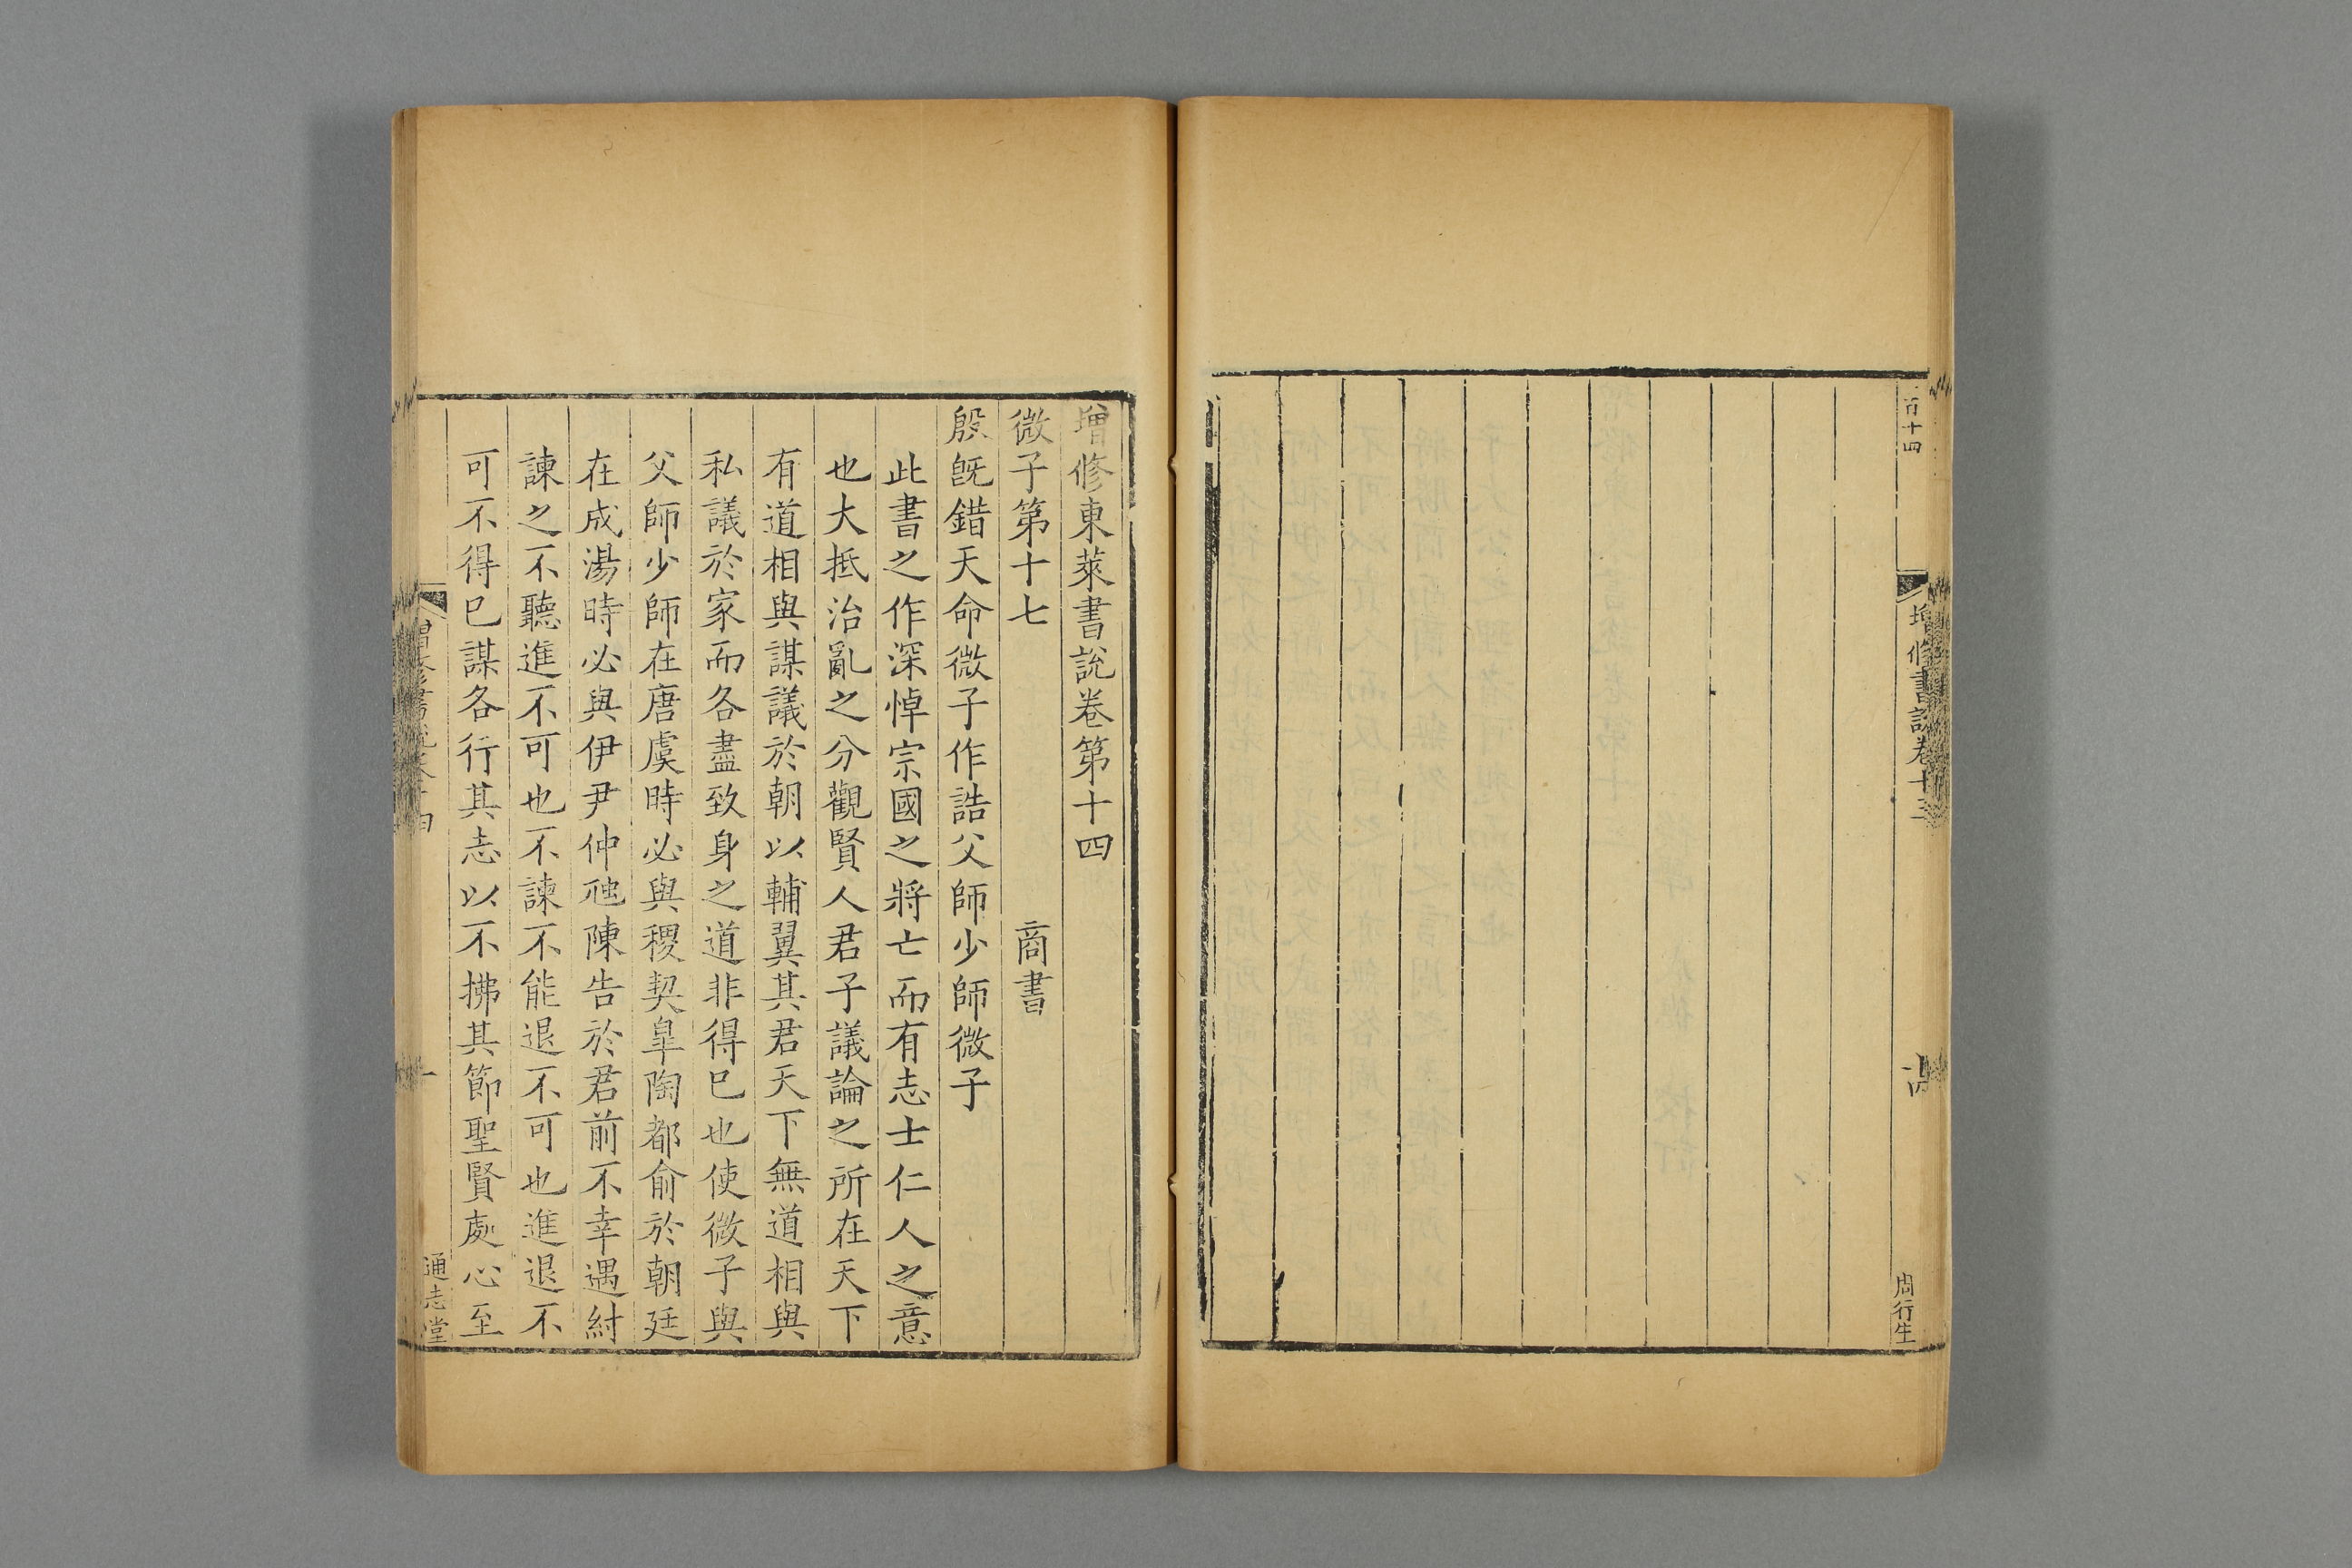 百十四
增修書說卷十三
周行生
增修東萊書說卷第十四
微子第十七　商書
殷旣錯天命微子作誥父師少師微子
此書之作深悼宗國之將亡而有志士仁人之意
也大抵治亂之分觀賢人君子議論之所在天下
有道相與謀議於朝以輔翼其君天下無道相與
私議於家而各盡致身之道非得已也使微子與
父師少師在唐虞時必與稷契皐陶都俞於朝廷
在成湯時必與伊尹仲虺陳告於君前不幸遇紂
諫之不聽進不可也不諫不能退不可也進退不
可不得已謀各行其志以不拂其節聖賢處心至
增修書說卷十四
一
通志堂